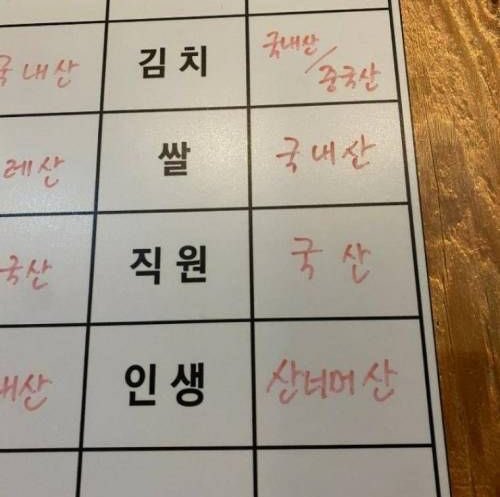 국내산 김치 국내산/중국산
산 쌀 국내산
국산 직원 국산
내산 인생 산너머 산